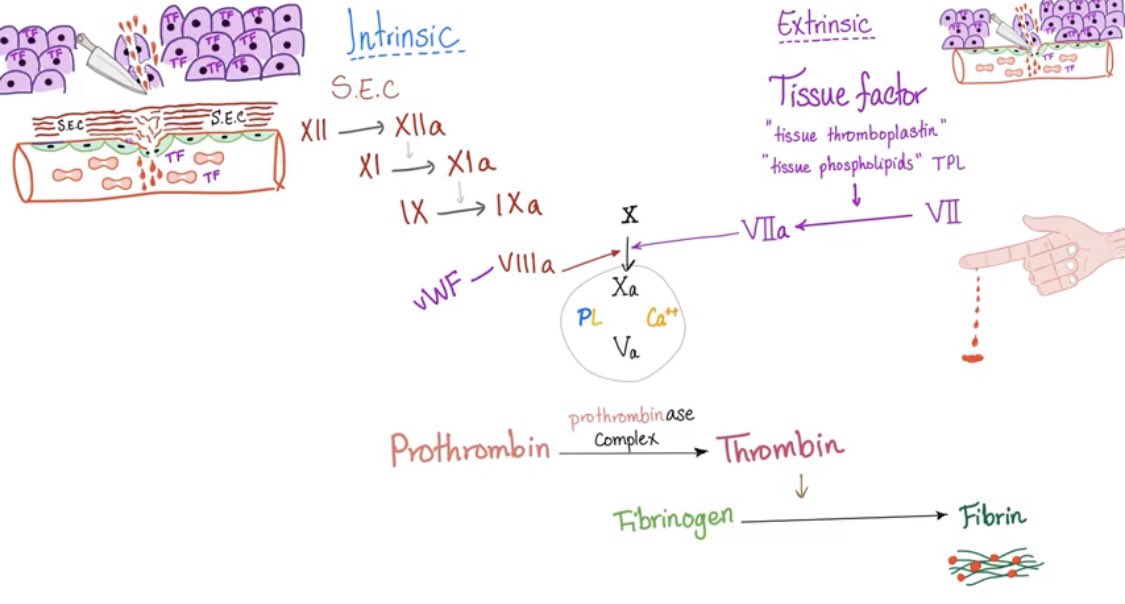 Intrinsic
S.E.C
XII → XIIa
XI → XIa
IX → IXa
vWF – VIIIa
TF TF TF TF TF TF TF TF
S.E.C S.E.C
TF
TF
Extrinsic
Tissue factor
"tissue thromboplastin"
"tissue phospholipids" TPL
VIIa ← VII
X
Xa
PL Ca++
Va
TF
TF
prothrombinase
Complex
Prothrombin → Thrombin
Fibrinogen → Fibrin